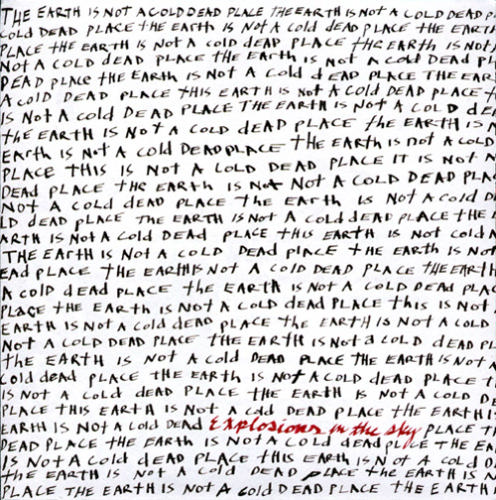 THE EARTH IS NOT A COLD DEAD PLACE THE EARTH IS NOT A COLD DEAD P
COLD DEAD PLACE THE EARTH IS NOT A COLD dEAd PLACE THE EARTH
PLACE THE EARTH IS NOT A COLD dEAD PLACE THE EARTH IS NOT
NOT A COLD DEAD PLACE THE EARTH IS NOT A COLD DEAD PL
DEAD PLACE THE EARTH IS NOT A COLD dEAD PLACE THE EAR
A COLD DEAD PLACE THIS EARTH IS NOT A COLD DEAD PLACE T
IS NOT A COLD DEAD PLACE THE EARTH IS NOT A COLD dE
THE EARTH IS NOT A COLD dEAD PLACE THE EARTH IS NOT A
EARTH IS NOT A COLD DEAD PLACE THE EARTH IS NOT A COLD
PLACE THIS IS NOT A COLD DEAD PLACE IT IS NOT A
DEAD PLACE THE EARTH IS NOT NOT A COLD DEAD PLA
NOT A COLD DEAD PLACE THE EARTH IS NOT A COLD D
LD DEAD PLACE THE EARTH IS NOT A COLD DEAD PLACE THE
ARTH IS NOT A COLD DEAD PLACE THIS EARTH IS NOT COLD A
THE EARTH IS NOT A COLD DEAD PLACE THE EARTH IS NOT
EAD PLACE THE EARTH IS NOT A COLD DEAD PLACE THE EARTH
A COLD DEAD PLACE THE EARTH IS NOT A COLD DEAD PLAC
PLACE THE EARTH IS NOT A COLD DEAD PLACE THIS IS NOT
EARTH IS NOT A COLD DEAD PLACE THE EARTH IS NOT A COLD
NOT A COLD DEAD PLACE THE EARTH IS NOT A COLD DEAD PL
THE EARTH IS NOT A COLD DEAD PLACE THE EARTH IS NOT A
COLD DEAD PLACE THE EARTH IS NOT A COLD DEAD PLACE T
IS NOT A COLD DEAD PLACE THE EARTH IS NOT A COLD DE
PLACE THIS EARTH IS NOT A COLD DEAD PLACE THE EARTH I
EARTH IS NOT A COLD DEAD Explosions in the sky PLACE T
DEAD PLACE THE EARTH IS NOT A COLD DEAD PLACE THE EA
IS NOT A COLD DEAD PLACE THIS EARTH IS NOT A COLD D
THE EARTH IS NOT A COLD DEAD PLACE THE EARTH IS NO
PLACE THE EARTH IS NOT A COLD DEAD PLACE THE EARTH